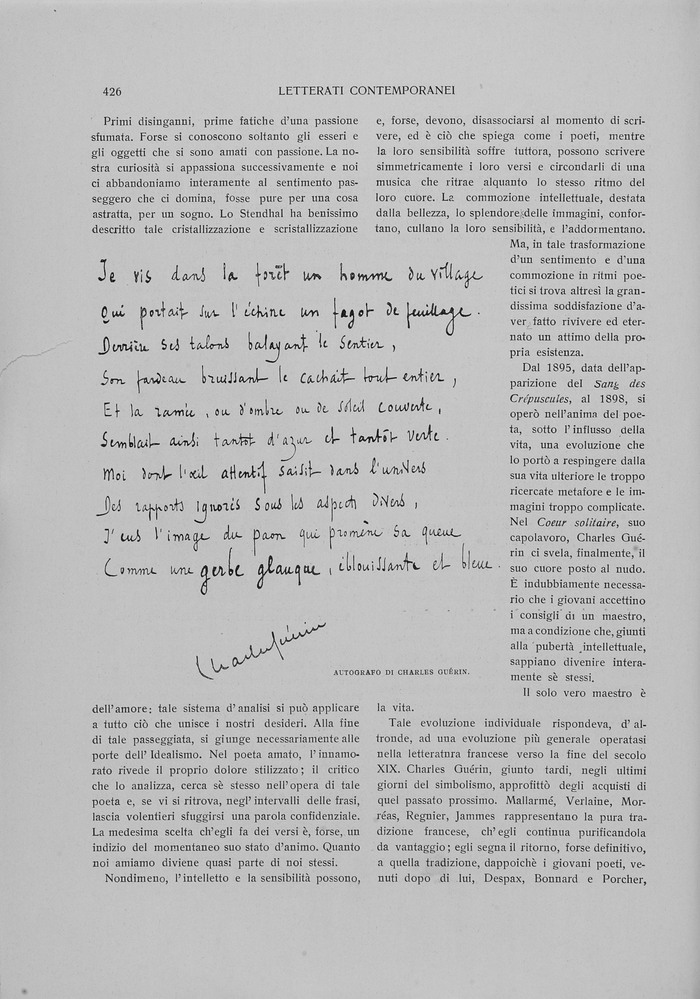 426
LETTERATI CONTEMPORANEI
Primi disinganni, prime fatiche d'una passione
sfumata. Forse si conoscono soltanto gli esseri e
gli oggetti che si sono amati con passione. La no-
stra curiosità si appassiona successivamente e noi
ci abbandoniamo interamente al sentimento pas-
seggero che ci domina, fosse pure per una cosa
astratta, per un sogno. Lo Stendhal ha benissimo
descritto tale cristallizzazione e scristallizzazione
e, forse, devono, disassociarsi al momento di scri-
vere, ed è ciò che spiega come i poeti, mentre
la loro sensibilità soffre tuttora, possono scrivere
simmetricamente i loro versi e circondarli di una
musica che ritrae alquanto lo stesso ritmo del
loro cuore. La commozione intellettuale, destata
dalla bellezza, lo splendore delle immagini, confor-
tano, cullano la loro sensibilità, e l'addormentano.
Ma, in tale trasformazione
d'un sentimento e d'una
commozione in ritmi poe-
tici si trova altresì la gran-
dissima soddisfazione d'a-
ver fatto rivivere ed eter-
nato un attimo della pro-
pria esistenza.
Dal 1895, data dell'ap-
parizione del Sang des
Crépuscules, al 1898, si
operò nell'anima del poe-
ta, sotto l'influsso della
vita, una evoluzione che
lo portò a respingere dalla
sua vita ulteriore le troppo
ricercate metafore e le im-
magini troppo complicate.
Nel Coeur solitaire, suo
capolavoro, Charles Gué-
rin ci svela, finalmente, il
suo cuore posto al nudo.
È indubbiamente necessa-
rio che i giovani accettino
i consigli di un maestro,
ma a condizione che, giunti
alla pubertà intellettuale,
sappiano divenire intera-
mente sè stessi.
Il solo vero maestro è
Je vis dans la forêt un homme du village
Qui portait sur l'échine un fagot de feuillage.
Derrière ses talons balayant le sentier,
Son fardeau bruissant le cachait tout entier,
Et la ramée, ou d'ombre ou de soleil couverte,
Semblait ainsi tantôt d'azur et tantôt verte.
Moi dont l'œil attentif saisit dans l'univers
Des rapports ignorés sous les aspects divers,
J'eus l'image du paon qui promène sa queue
Comme une gerbe glauque, éblouissante et bleue.
Charles Guérin
AUTOGRAFO DI CHARLES GUÉRIN.
dell'amore: tale sistema d'analisi si può applicare
a tutto ciò che unisce i nostri desideri. Alla fine
di tale passeggiata, si giunge necessariamente alle
porte dell'Idealismo. Nel poeta amato, l'innamo-
rato rivede il proprio dolore stilizzato; il critico
che lo analizza, cerca sè stesso nell'opera di tale
poeta e, se vi si ritrova, negl'intervalli delle frasi,
lascia volentieri sfuggirsi una parola confidenziale.
La medesima scelta ch'egli fa dei versi è, forse, un
indizio del momentaneo suo stato d'animo. Quanto
noi amiamo diviene quasi parte di noi stessi.
Nondimeno, l'intelletto e la sensibilità possono,
la vita.
Tale evoluzione individuale rispondeva, d'al-
tronde, ad una evoluzione più generale operatasi
nella letteratura francese verso la fine del secolo
XIX. Charles Guérin, giunto tardi, negli ultimi
giorni del simbolismo, approfittò degli acquisti di
quel passato prossimo. Mallarmé, Verlaine, Mor-
réas, Regnier, Jammes rappresentano la pura tra-
dizione francese, ch'egli continua purificandola
da vantaggio; egli segna il ritorno, forse definitivo,
a quella tradizione, dappoichè i giovani poeti, ve-
nuti dopo di lui, Despax, Bonnard e Porcher,